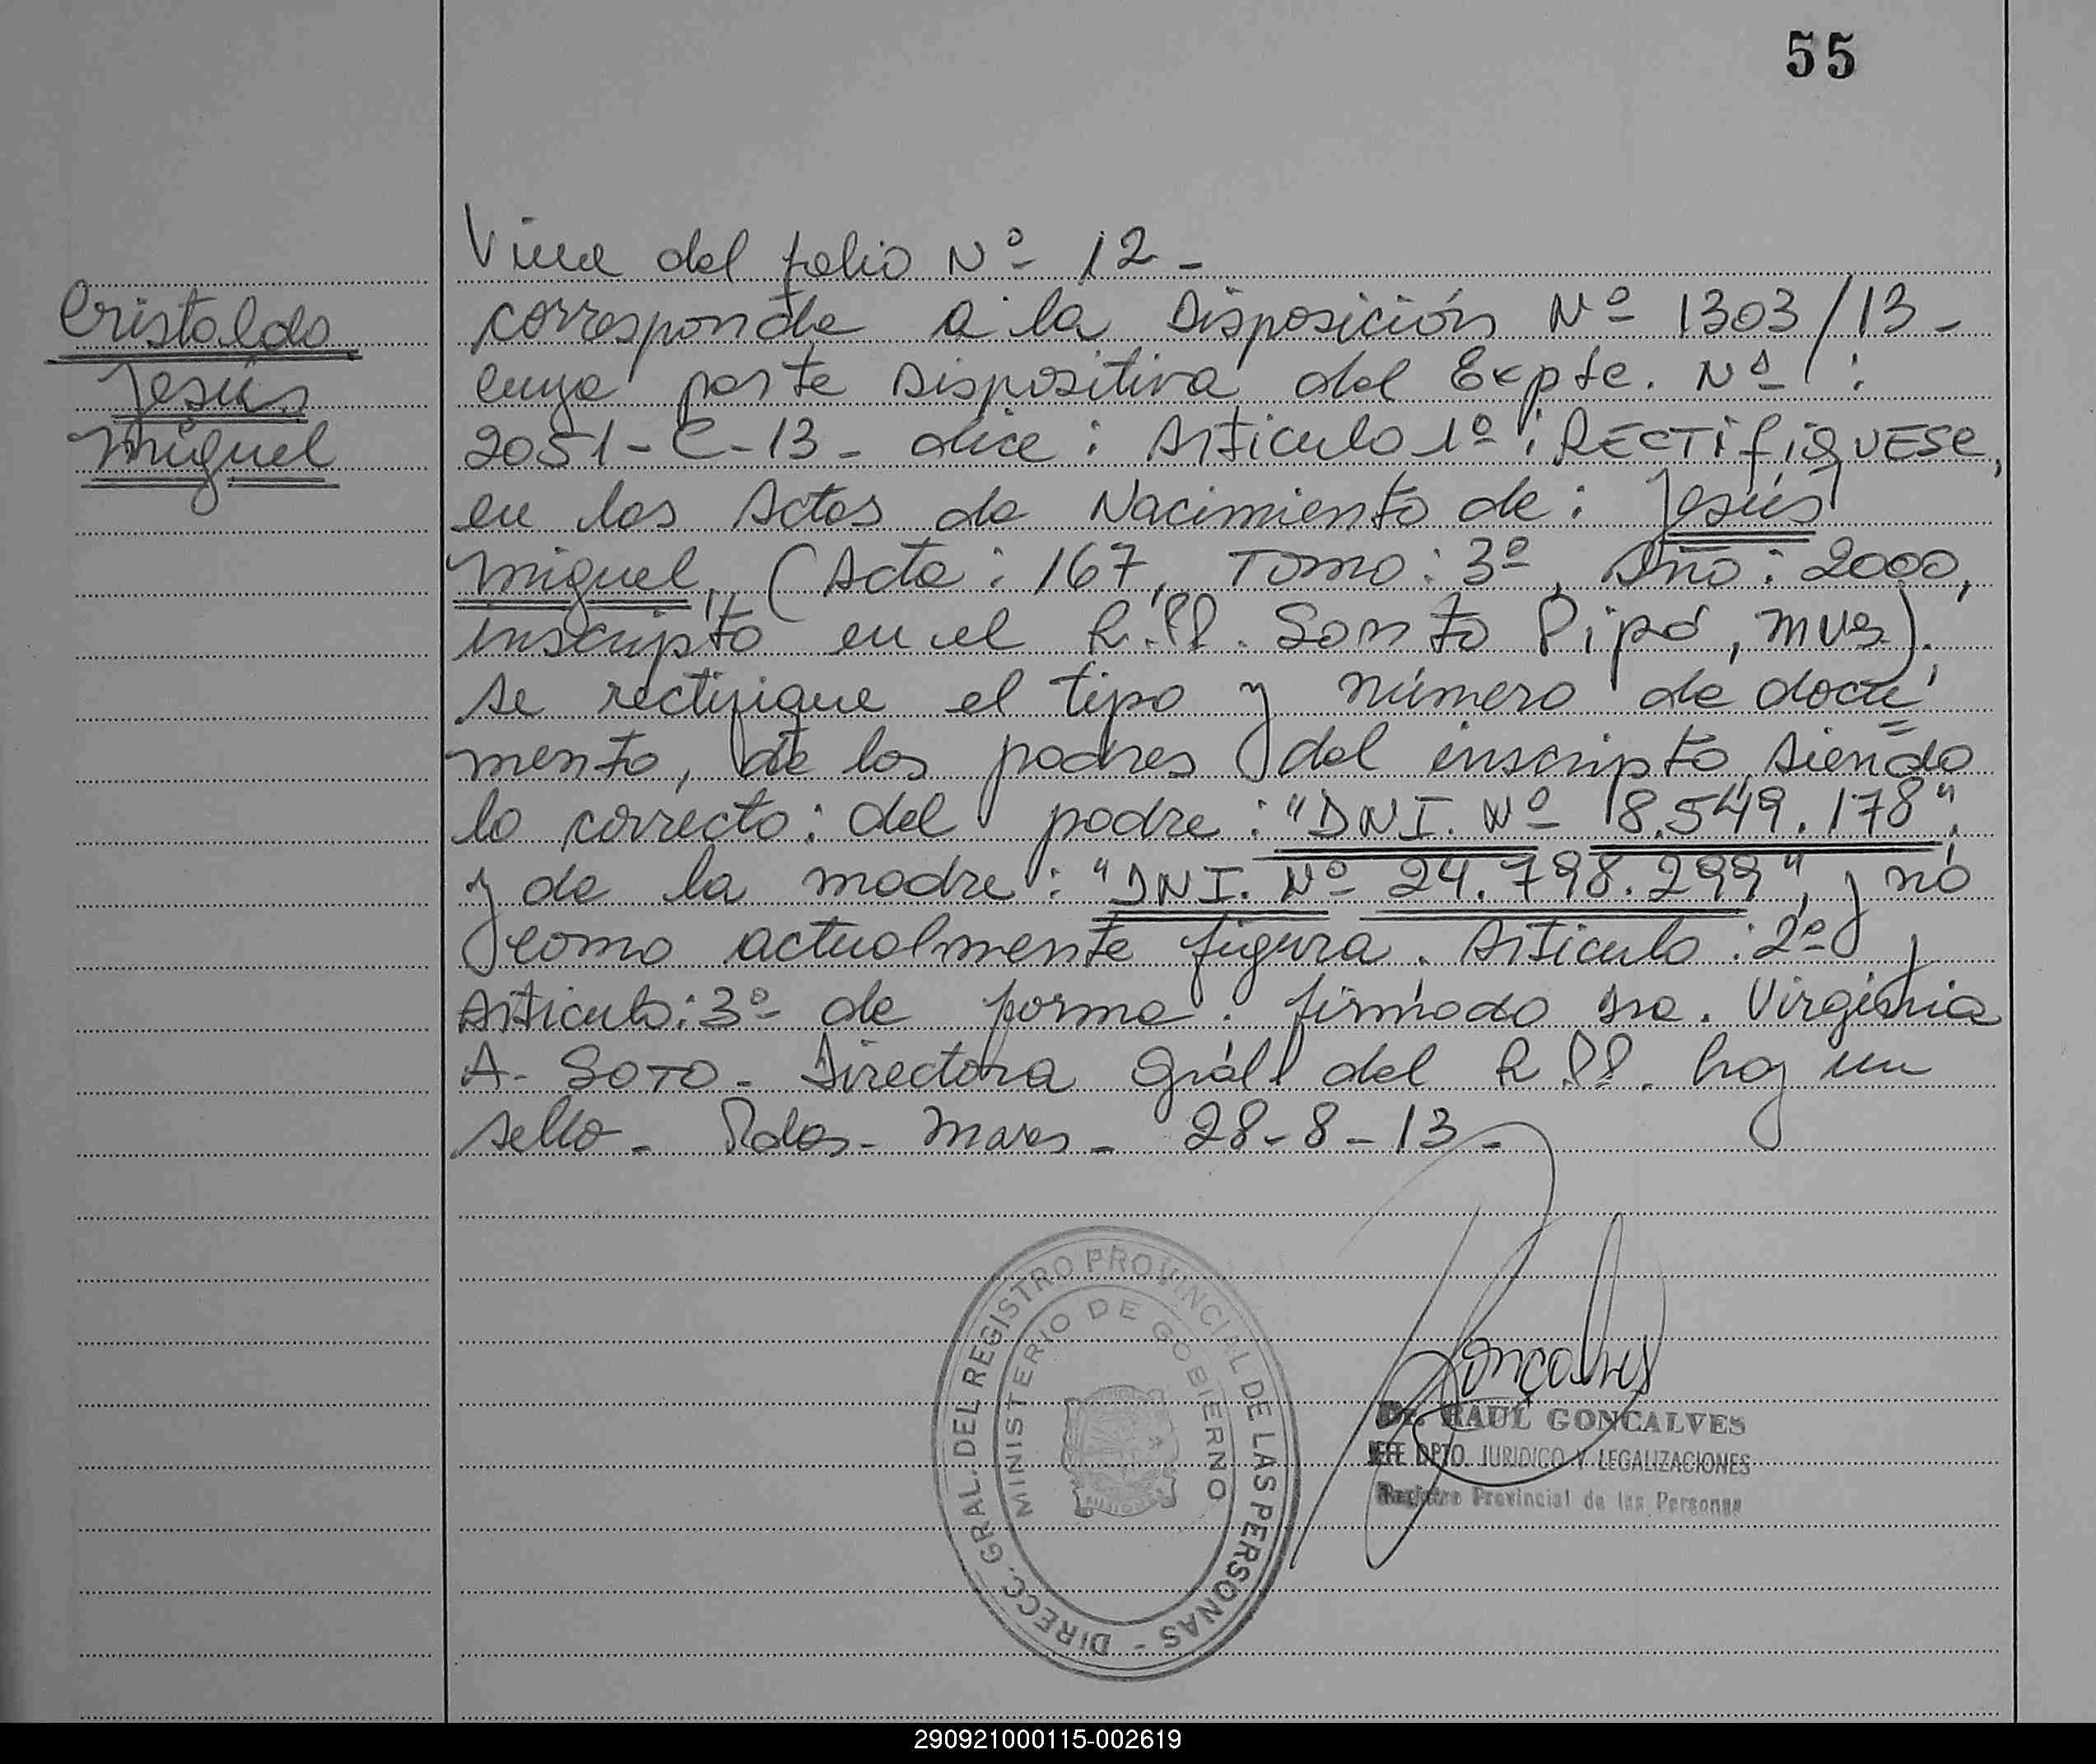 55
Cristaldo
Jesús
Miguel
Viene del folio Nº 12 -
corresponde a la Disposición Nº 1303/13 -
cuya parte Dispositiva del Expte. Nº :
2051 - C - 13 - dice : Articulo 1º : RECTifiQUESE,
en las Actas de Nacimiento de : Jesús
Miguel, (Acta : 167, Tomo : 3º, Año : 2000,
inscripto en el R.PP. Santo Pipó, Mnes).
se rectifique el tipo y número de docu=
mento, de los padres del inscripto, siendo
lo correcto : del padre : "DNI. Nº 18.549.178",
y de la madre : "DNI. Nº 24.798.299", y no
como actualmente figura. Articulo : 2º y
Articulo : 3º de forma. firmado Sra. Virginia
A. SOTO - Directora Gral del R.PP. hay un
sello - Pdas - Mnes - 28-8-13 -
DIRECC. GRAL. DEL REGISTRO PROVINCIAL DE LAS PERSONAS -
MINISTERIO DE GOBIERNO
MISIONES
Gonçalves
Dr. RAUL GONCALVES
JEFE DPTO. JURIDICO Y LEGALIZACIONES
Registro Provincial de las Personas
290921000115-002619